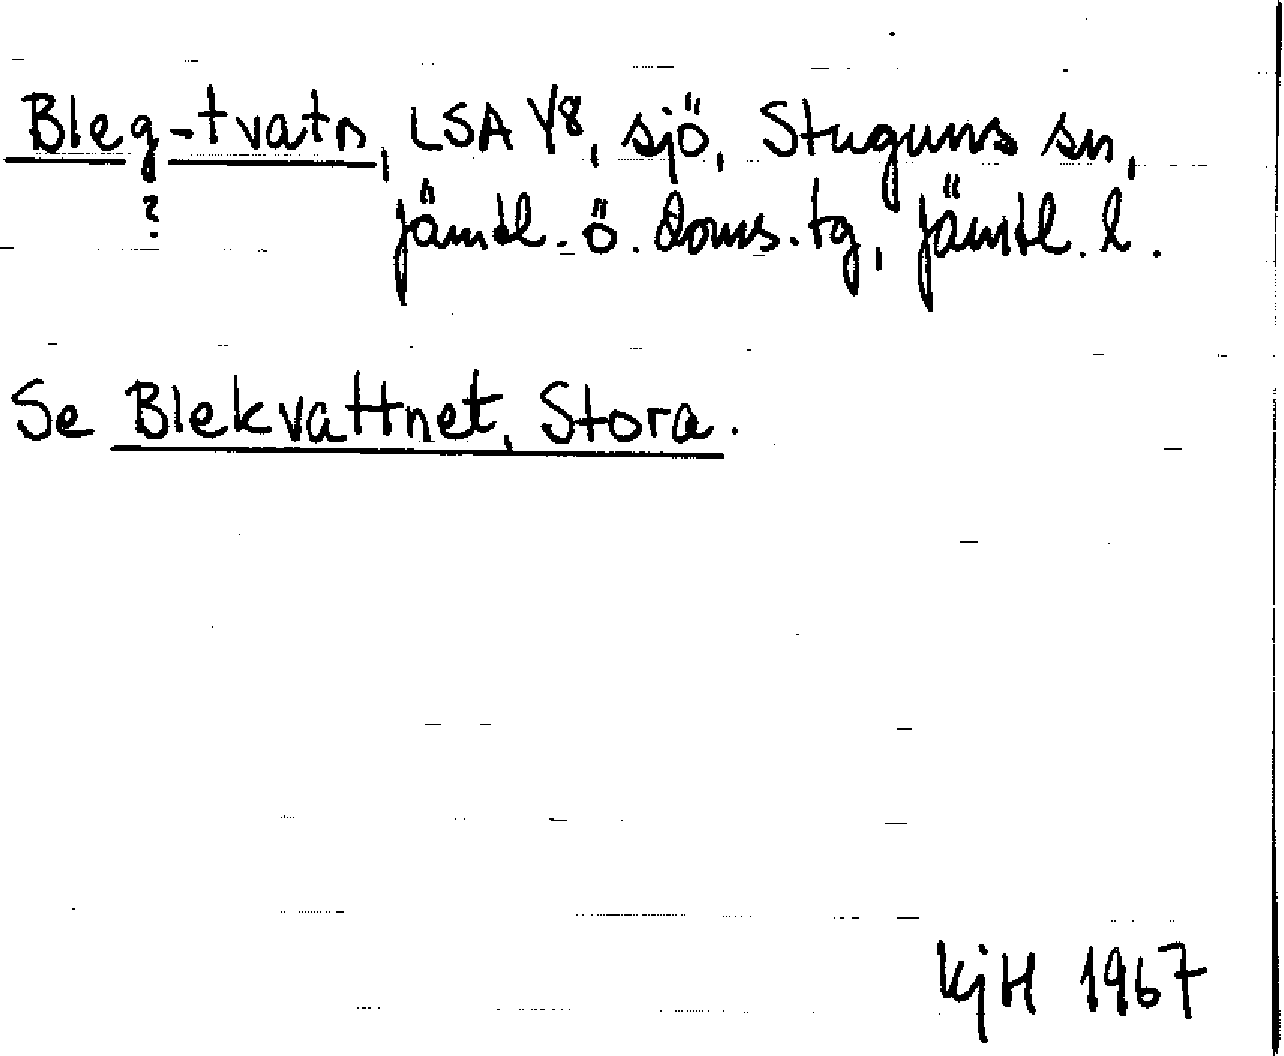 Bleg-tvatn, LSA Y8, sjö, Stuguns sn,
?
Jämtl. ö. doms. tg, Jämtl. l.
Se Blekvattnet, Stora.
KjH 1967